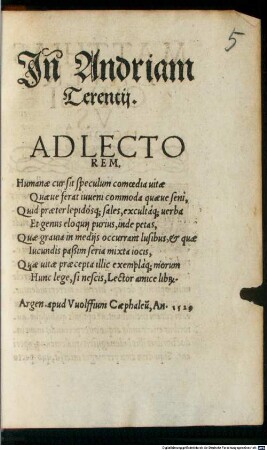 5
In Andriam
Terentij.
AD LECTO
REM.
Humanæ cur sit speculum comœdia uitæ
Quæue ferat iuueni commoda quæue seni,
Quid præter lepidósq; sales, excultáq; uerba
Et genus eloquij purius, inde petas,
Quæ grauia in medijs occurrant lusibus, & quæ
Iucundis passim seria mixta iocis,
Quæ uitæ præcepta illic exempláq; morum
Hunc lege, si nescis, Lector amice librũ.
Argen. apud Vuolffium Cæphaleũ, An. 1529